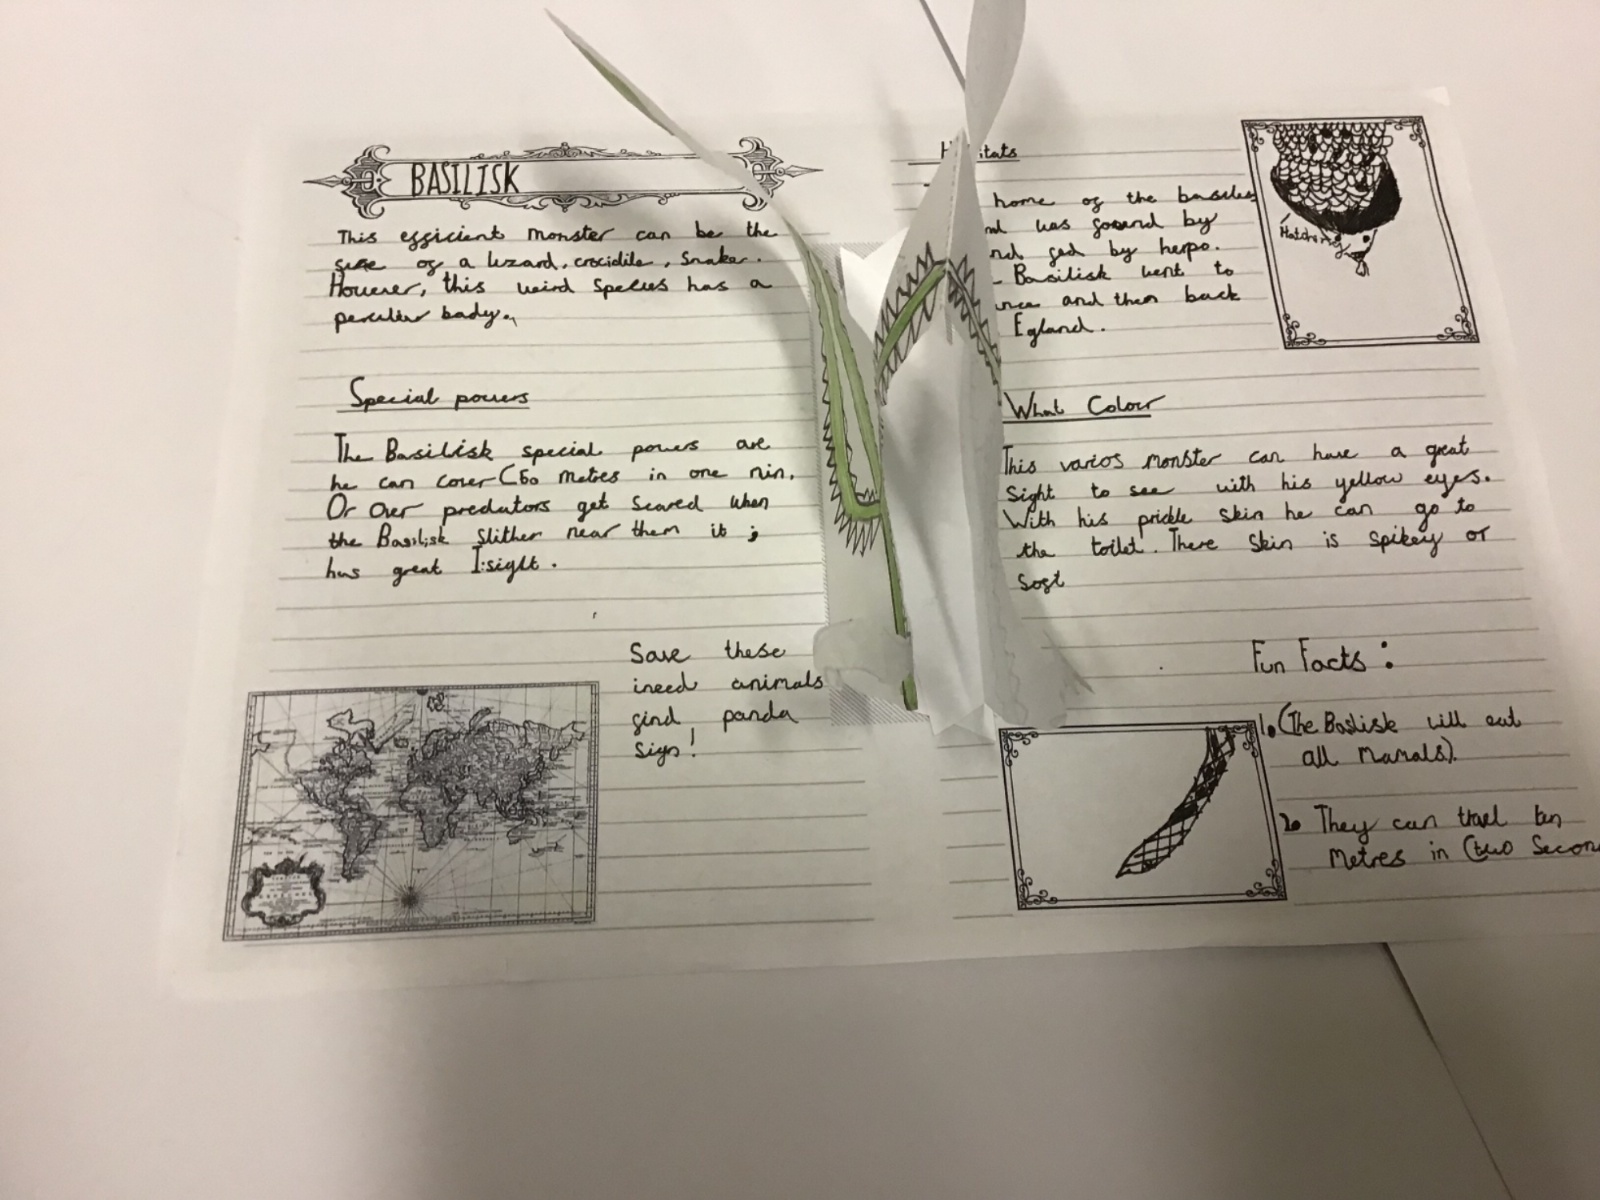 BASILISK
This efficient monster can be the
size of a luzard, crocidile, snake.
However, this weird species has a
peculiar bady.
Special powers
The Basilisk special powers are
he can cover (60 metres in one min.
Or over predators get scared when
the Basilisk slither near them it ;
has great I:sight.
Save these
ineed animals
find panda
sign!
Habitats
home of the
was by
fed by herpo.
Basilisk went to
and then back
Egland.
Hatching
What Colour
This varios monster can have a great
sight to see with his yellow eyes.
With his prickle skin he can go to
the toilet. There skin is spikey or
soft
Fun Facts :
1. (The Baslisk will eat
all mamals).
2. They can travel ten
metres in (two